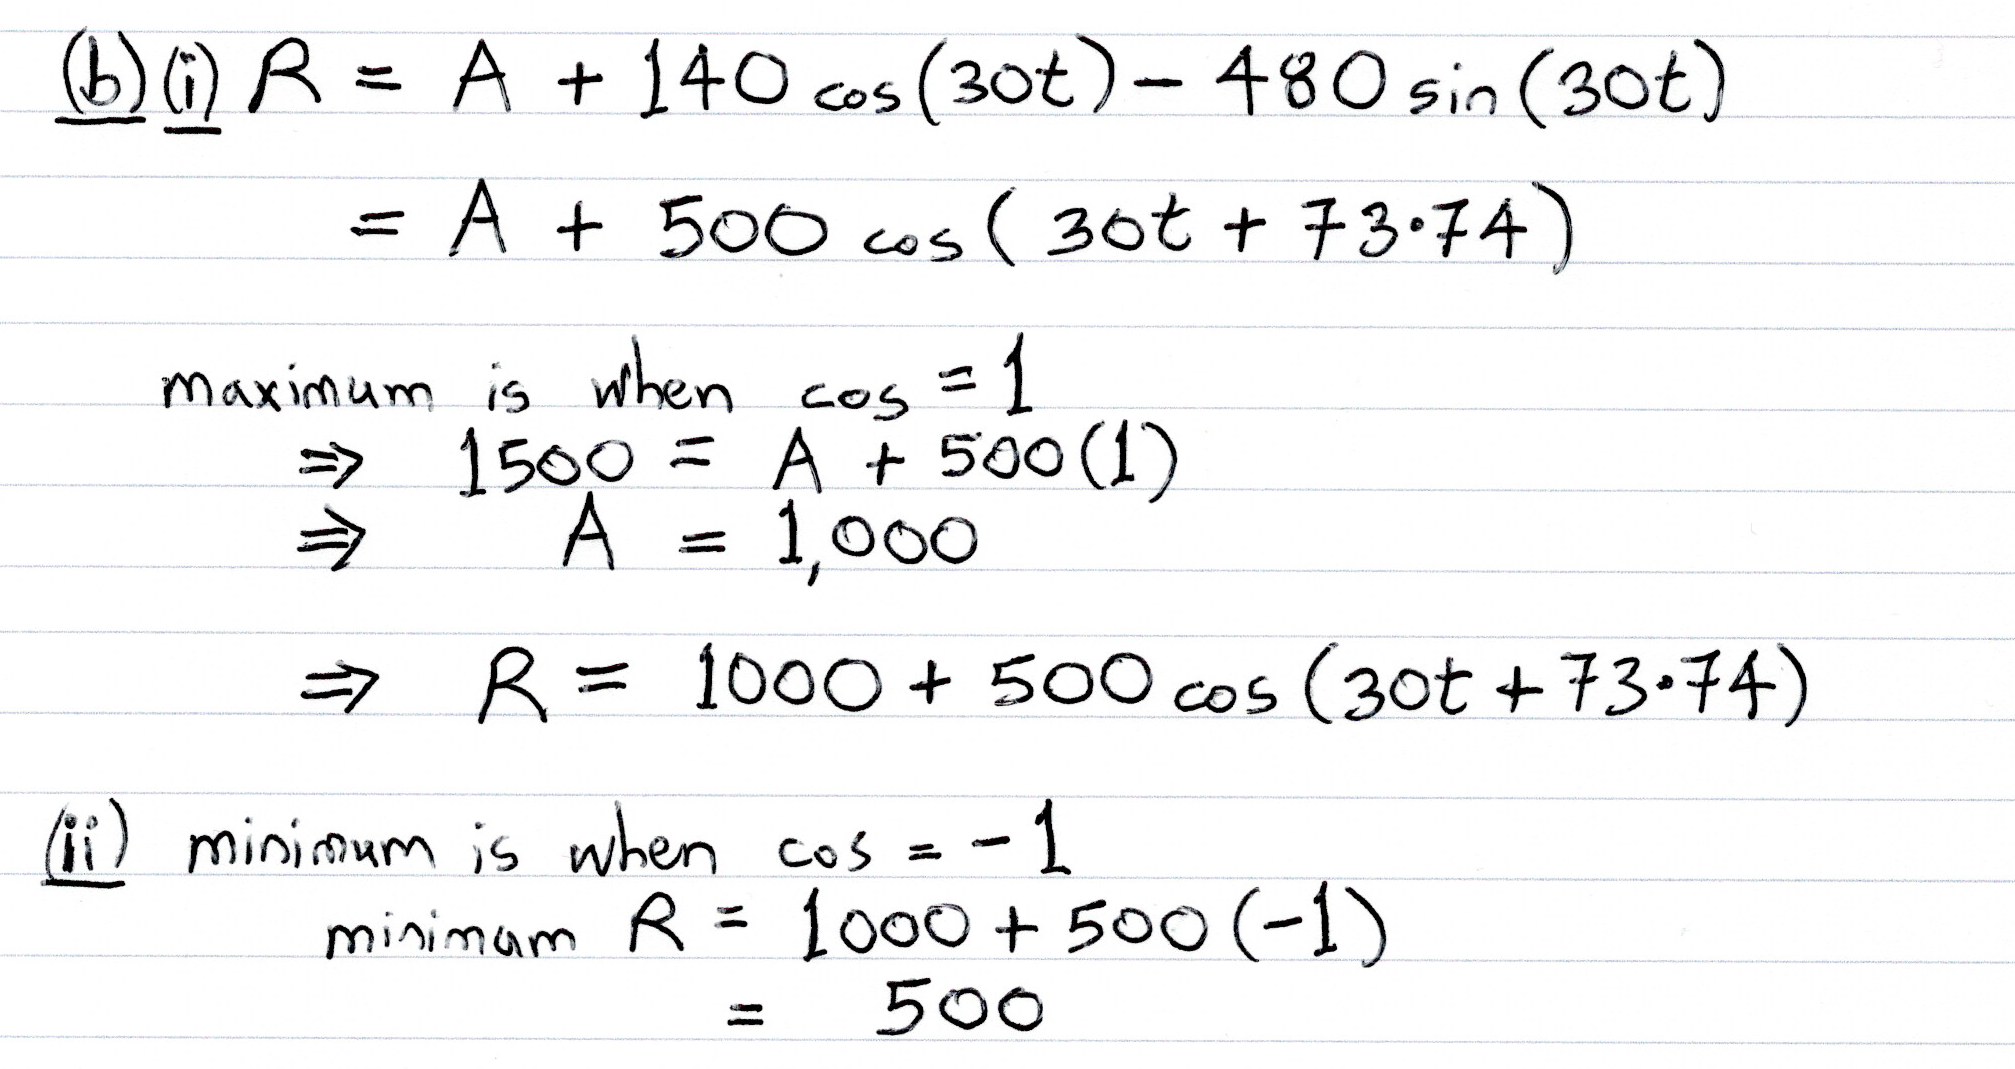 (b) (i) R = A + 140 cos(30t) − 480 sin(30t)
= A + 500 cos(30t + 73·74)
maximum is when cos = 1
⇒ 1500 = A + 500(1)
⇒ A = 1,000
⇒ R = 1000 + 500 cos(30t + 73·74)
(ii) minimum is when cos = −1
minimum R = 1000 + 500(−1)
= 500